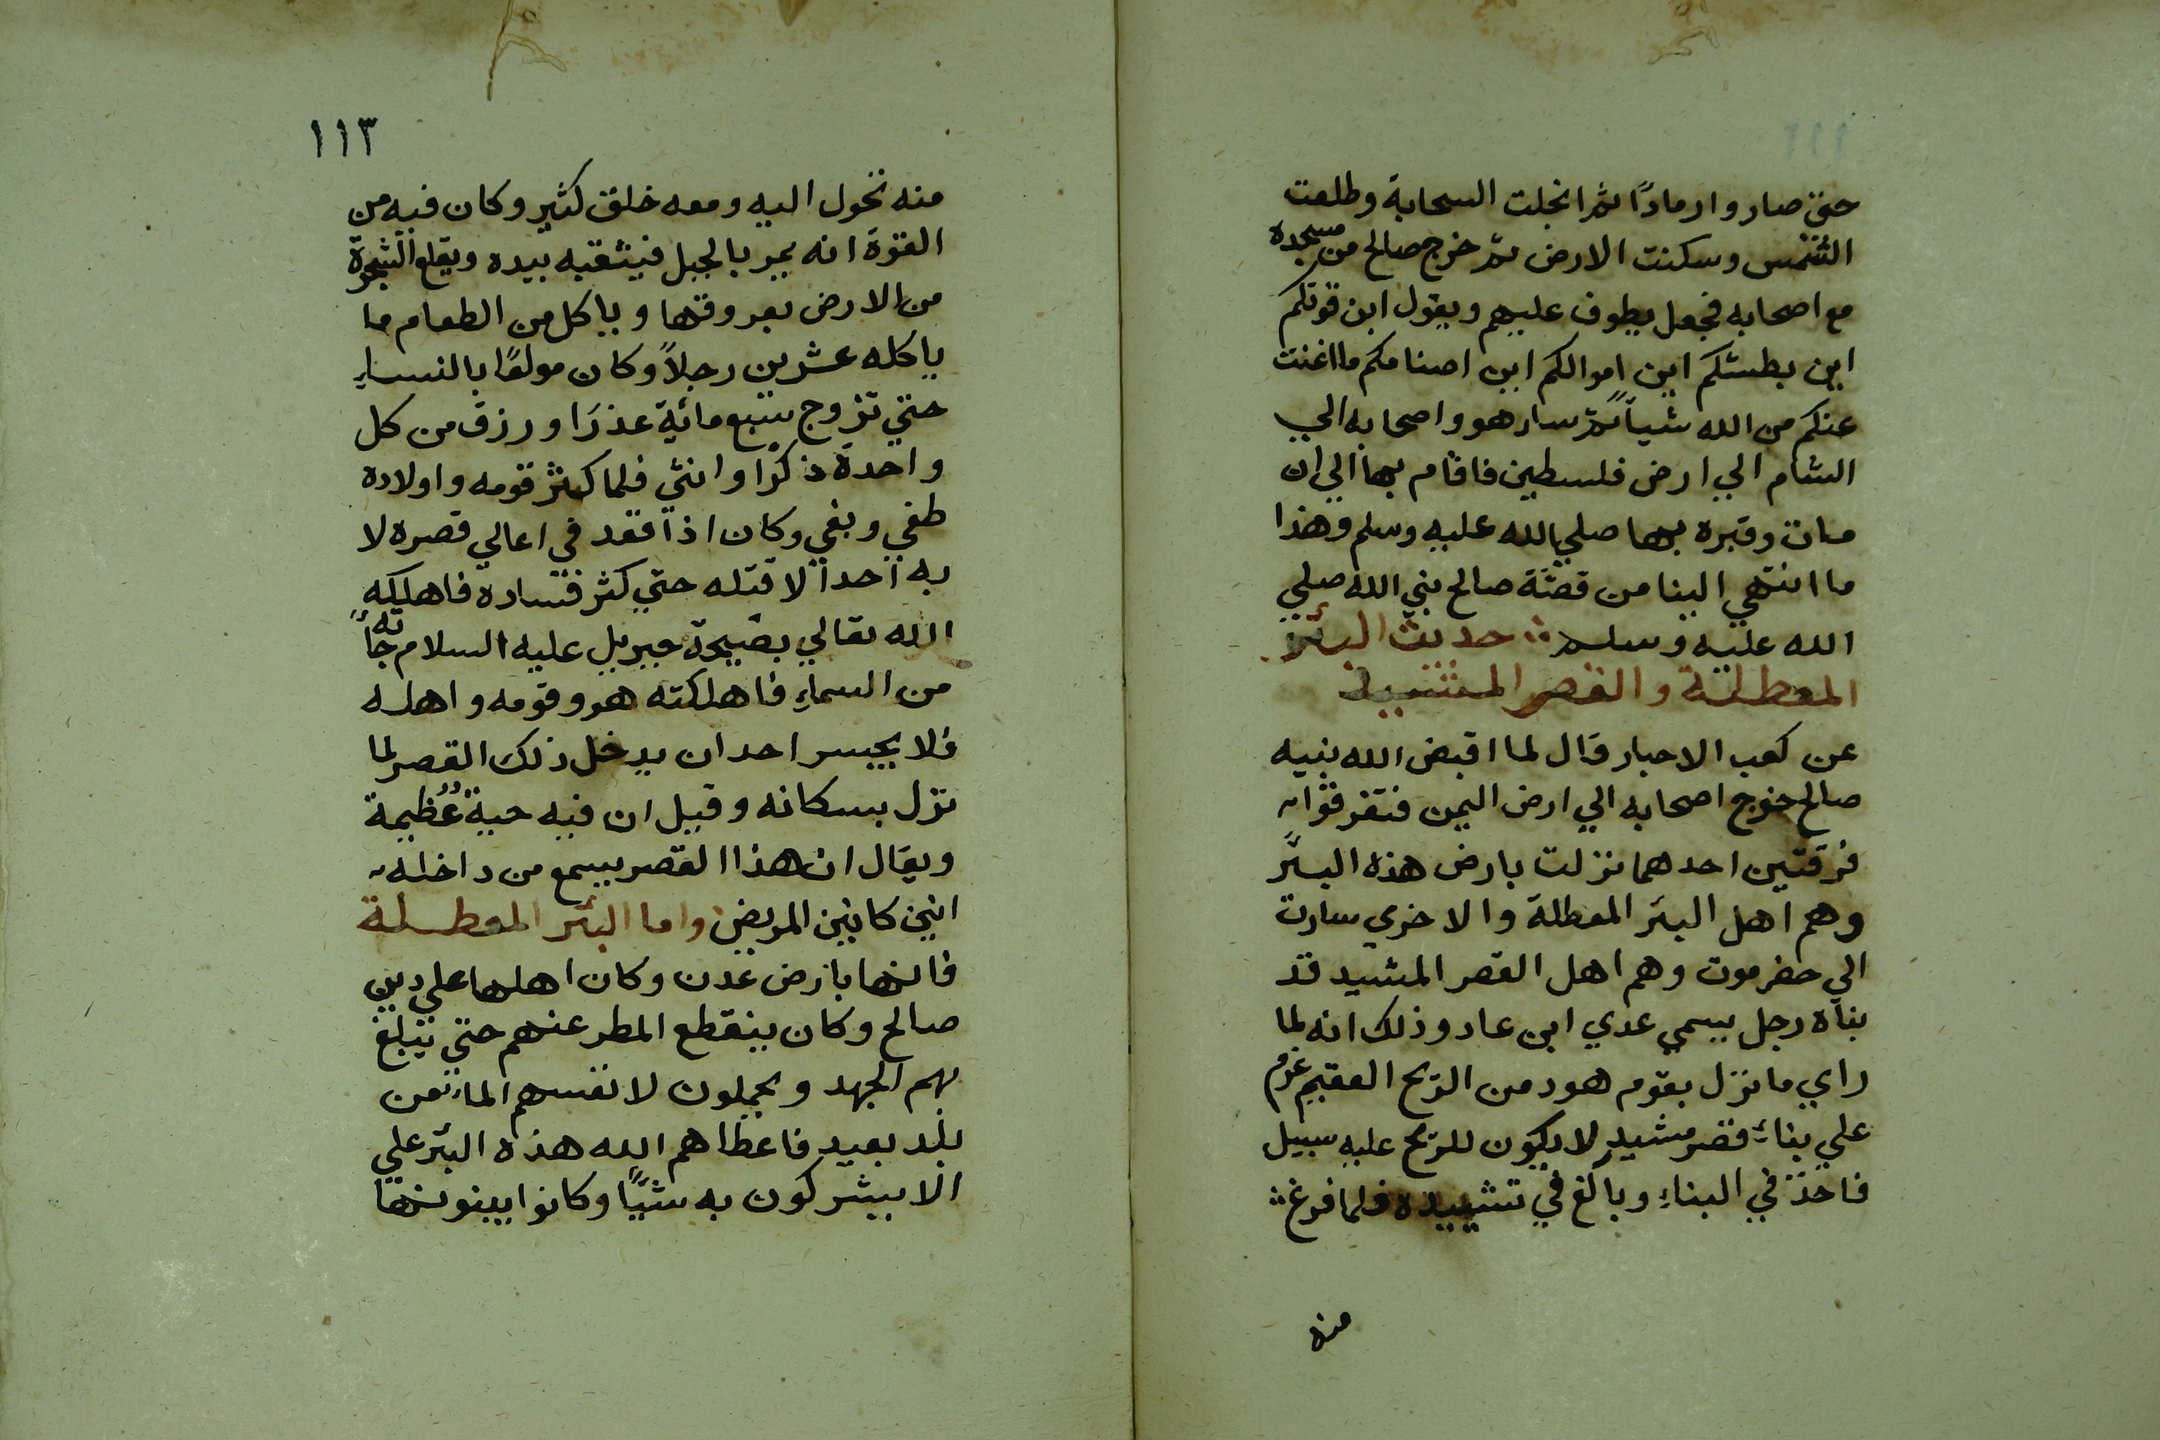 حتى صاروا رمادًا ثم انجلت السحابة وطلعت
الشمس وسكنت الارض ثم خرج صالح من مسجده
مع اصحابه فجعل يطوف عليهم ويقول اين قوتكم
اين بطشكم اين اموالكم اين اصنامكم ما اغنت
عنكم من الله شياً ثم سار هو واصحابه الي
الشام الي ارض فلسطين فاقام بها الي ان
مات وقبره بها صلي الله عليه وسلم وهذا
ما انتهي الينا من قصة صالح نبي الله صلي
الله عليه وسلم حديث البئر
المعطلة والقصر المشيد
عن كعب الاحبار قال لما اقبض الله نبيه
صالح خرج اصحابه الي ارض اليمن فتفرقوا
فرقتين احدهما نزلت بارض هذه البئر
وهم اهل البئر المعطلة والاخري سارت
الي حضرموت وهم اهل القصر المشيد قد
بناه رجل يسمي عدي ابن عاد وذلك انه لما
راي ما نزل بقوم هود من الريح العقيم عزم
علي بناء قصر مشيد لا يكون للريح عليه سبيل
فاخذ في البناء وبالغ في تشييده فلما فرغ
منه
١١٣
منه تحول اليه ومعه خلق كثير وكان فيه من
القوة انه يمر بالجبل فينثقبه بيده ويقلع الشجرة
من الارض بعروقها وياكل من الطعام ما
ياكله عشرين رجلاً وكان مولعًا بالنساء
حتي تزوج سبع مائة عذرا ورزق من كل
واحدة ذكرًا وانثي فلما كثر قومه واولاده
طغي وبغي وكان اذا قعد في اعالي قصره لا
به احداً لا قتله حتي كثر فساده فاهلكه
الله تعالي بصيحة جبريل عليه السلام جأته
من السماء فاهلكته هو وقومه واهله
فلا يجسر احد ان يدخل ذلك القصر لما
نزل بسكانه وقيل ان فيه حية عظيمة
ويقال ان هذا القصر يسمع من داخله
انين كانين المريض واما البئر المعطلة
فانها بارض عدن وكان اهلها علي دين
صالح وكان ينقطع المطر عنهم حتي يبلغ
بهم الجهد ويحملون لانفسهم الماء من
بلد بعيد فاعطاهم الله هذه البئر علي
الا يشركون به شيًا وكانوا يبنونها